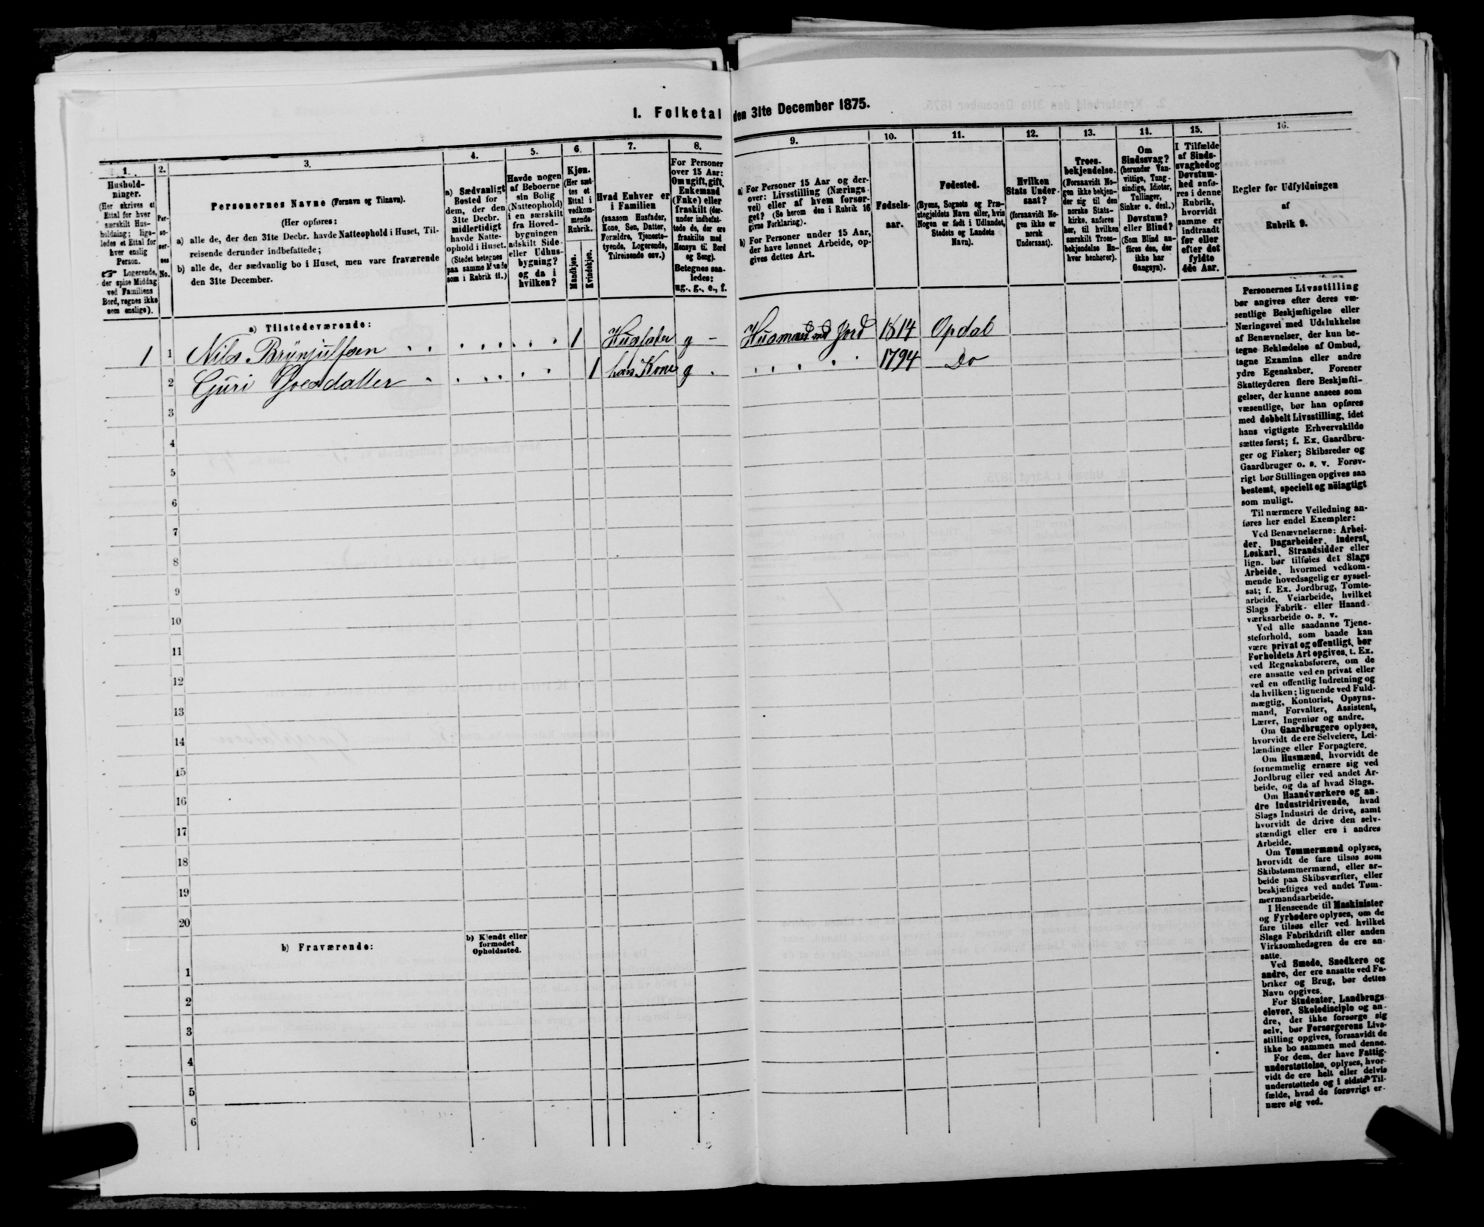 I. Folketal den 31te December 1875.
1.
2.
3.
4.
5.
6.
7.
8.
9.
10.
11.
12.
13.
14.
15.
16.
Hushold-
ninger.
(Her skrives et
Ettal for hver
særskilt Hus-
holdning; lige-
ledes et Ettal for
hver enslig
Person.
☞ Logerende,
der spise Middag
ved Familiens
Bord, regnes ikke
som enslige).
Per-
so-
ner-
nes
No.
Personernes Navne (Fornavn og Tilnavn).
(Her opføres:
a) alle de, der den 31te Decbr. havde Natteophold i Huset, Til-
reisende derunder indbefattede;
b) alle de, der sædvanlig bo i Huset, men vare fraværende
den 31te December.
a) Sædvanligt
Bosted for
dem, der den
31te Decbr.
midlertidigt
havde Natte-
ophold i Huset.
(Stedet betegnes
paa samme Maade
som i Rubrik 11.)
Havde nogen
af Beboerne
sin Bolig
(Natteophold)
i en særskilt
fra Hoved-
bygningen
adskilt Side-
eller Udhus-
bygning?
og da i
hvilken?
Kjøn.
(Her sæt-
tes et
Ettal i
vedkom-
mende
Rubrik.
Mandkjøn.
Kvindekjøn.
Hvad Enhver er
i Familien
(saasom Husfader,
Kone, Søn, Datter,
Forældre, Tjeneste-
tyende, Logerende,
Tilreisende osv.)
For Personer
over 15 Aar:
Om ugift, gift,
Enkemand
(Enke) eller
fraskilt (der-
under indbefat-
tede de, der ere
fraskilte med
Hensyn til Bord
og Seng).
Betegnes saa-
ledes:
ug., g., e., f.
a) For Personer 15 Aar og der-
over: Livsstilling (Nærings-
vei) eller af hvem forsør-
get? (Se herom den i Rubrik 16
givne Forklaring).
b) For Personer under 15 Aar,
der have lønnet Arbeide, op-
gives dettes Art.
Fødsels-
aar.
Fødested.
(Byens, Sognets og Præ-
stegjeldets Navn eller, hvis
Nogen er født i Udlandet,
Stedets og Landets
Navn).
Hvilken
Stats Under-
saat?
(forsaavidt No-
gen ikke er
norsk
Undersaat).
Troes-
bekjendelse.
(Forsaavidt No-
gen ikke bekjen-
der sig til den
norske Stats-
kirke, anføres
her, til hvilken
særskilt Troes-
bekjendelse En-
hver henhører).
Om
Sindssvag?
(herunder Van-
vittige, Tung-
sindige, Idioter,
Tullinger,
Sinker o. desl.)
Døvstum?
eller Blind?
(Som Blind an-
føres den, der
ikke har
Gangsyn).
I Tilfælde
af Sinds-
svaghed og
Døvstum-
hed anfø-
res i denne
Rubrik,
hvorvidt
samme er
indtraadt
før eller
efter det
fyldte
4de Aar.
Regler for Udfyldningen
af
Rubrik 9.
a) Tilstedeværende:
1 1 Nils Brynjulfsen 1 Husfader g Husmand med Jord 1814 Opdal
2 Guri Ovesdatter 1 hans Kone g 1794 Do
3
4
5
6
7
8
9
10
11
12
13
14
15
16
17
18
19
20
b) Fraværende:
b) Kjendt eller
formodet
Opholdssted.
1
2
3
4
5
6
Personernes Livsstilling
bør angives efter deres væ-
sentlige Beskjæftigelse eller
Næringsvei med Udelukkelse
af Benævnelser, der kun be-
tegne Beklædelse af Ombud,
tagne Examina eller andre
ydre Egenskaber. Forener
Skatteyderen flere Beskjæfti-
gelser, der kunne ansees som
væsentlige, bør han opføres
med dobbelt Livsstilling, idet
hans vigtigste Erhvervskilde
sættes først; f. Ex. Gaardbru-
ger og Fisker; Skibsreder og
Gaardbruger o. s. v. Forøv-
rigt bør Stillingen opgives saa
bestemt, specielt og nøiagtigt
som muligt.
Til nærmere Veiledning an-
føres her endel Exempler:
Ved Benævnelserne: Arbei-
der, Dagarbeider, Inderst,
Løskarl, Strandsidder eller
lign. bør tilføies det Slags
Arbeide, hvormed vedkom-
mende hovedsagelig er syssel-
sat; f. Ex. Jordbrug, Tomte-
arbeide, Veiarbeide, hvilket
Slags Fabrik- eller Haand-
værksarbeide o. s. v.
Ved alle saadanne Tjene-
steforhold, som baade kan
være privat og offentligt, bør
Forholdets Art opgives, t. Ex.
ved Regnskabsførere, om de
ere ansatte ved en privat eller
ved en offentlig Indretning og
da hvilken; lignende ved Fuld-
mægtig, Kontorist, Opsyns-
mand, Forvalter, Assistent,
Lærer, Ingeniør og andre.
Om Gaardbrugere oplyses,
hvorvidt de ere Selveiere, Lei-
lændinge eller Forpagtere.
Om Husmænd, hvorvidt de
fornemmelig ernære sig ved
Jordbrug eller ved andet Ar-
beide, og da af hvad Slags.
Om Haandværkere og an-
dre Industridrivende, hvad
Slags Industri de drive, samt
hvorvidt de drive den selv-
stændigt eller ere i andres
Arbeide.
Om Tømmermænd oplyses,
hvorvidt de fare tilsøs som
Skibstømmermænd, eller ar-
beide paa Skibsværfter, eller
beskjæftiges ved andet Tøm-
mermandsarbeide.
I Henseende til Maskinister
og Fyrbødere oplyses, om de
fare tilsøs eller ved hvilket
Slags Fabrikdrift eller anden
Virksomhedsgren de ere an-
satte.
Ved Smede, Snedkere og
andre, der ere ansatte ved Fa-
briker og Brug, bør dettes
Navn opgives.
For Studenter, Landbrugs-
elever, Skoledisciple og an-
dre, der ikke forsørge sig
selv, bør Forsørgerens Livs-
stilling opgives, forsaavidt de
ikke bo sammen med denne.
For dem, der have Fattig-
understøttelse, oplyses, hvor-
vidt de ere helt eller delvis
understøttede og i sidste Til-
fælde, hvad de forøvrigt er-
nære sig ved.